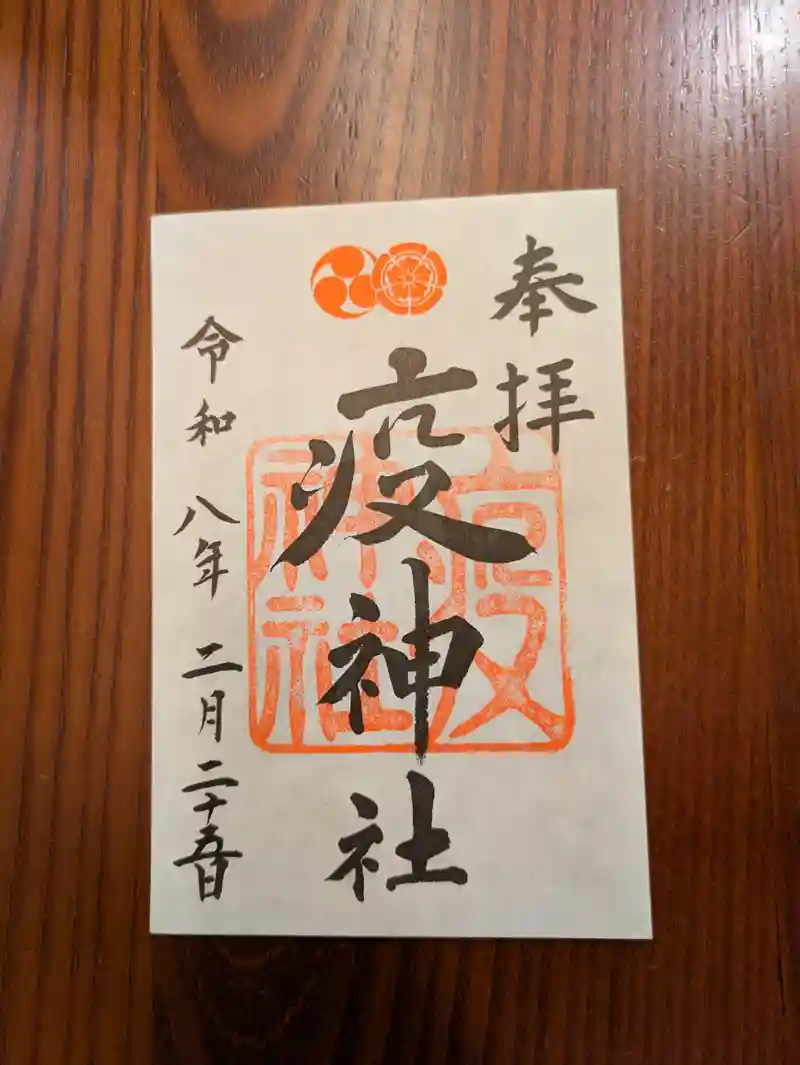 奉拝
疫神社
疫神社
令和八年二月二十五日